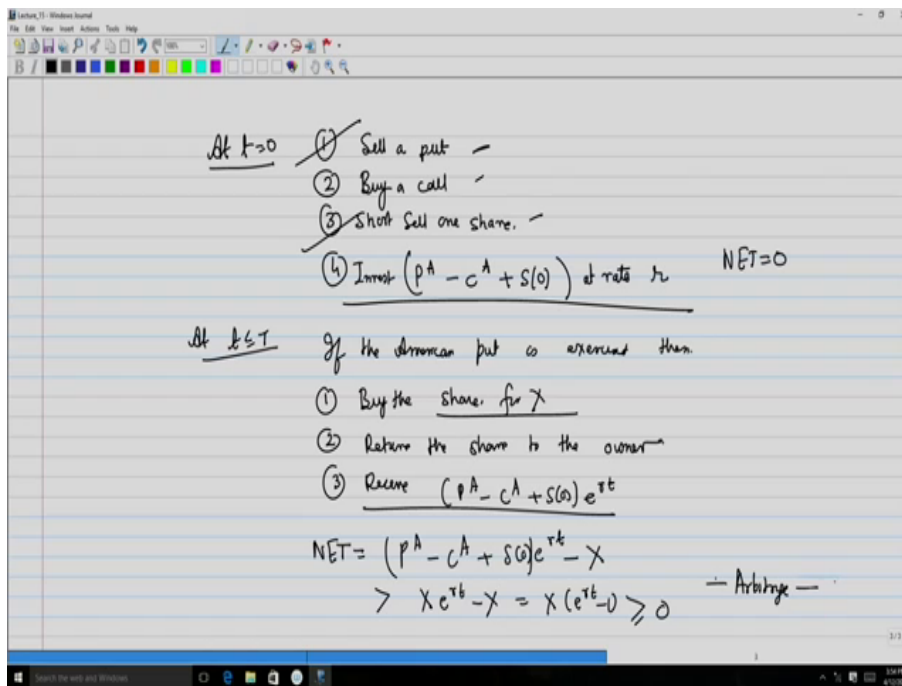 Lecture_15 - Windows Journal
File Edit View Insert Actions Tools Help
B I
At t=0 ① Sell a put –
② Buy a call –
③ Short Sell one share. –
④ Invest (P^A - C^A + S(0)) at rate r NET=0
At t≤T If the American put is exercised then.
① Buy the share. for X
② Return the share to the owner
③ Receive (P^A - C^A + S(0)) e^{rt}
NET = (P^A - C^A + S(0)) e^{rt} - X
> X e^{rt} - X = X (e^{rt} - 1) ≥ 0 — Arbitrage —
3/3
3
Search the web and Windows
3:54 PM